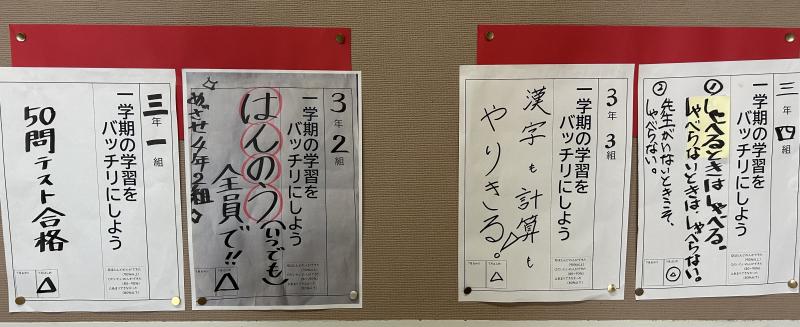 三年一組
一学期の学習を
バッチリにしよう
50問テスト合格
△
3年2組
一学期の学習を
バッチリにしよう
はんのう(いつでも)
全員で!!
めざせ4年2組
△
3年3組
一学期の学習を
バッチリにしよう
漢字も計算も
やりきる。
△
三年四組
一学期の学習を
バッチリにしよう
①しゃべるときはしゃべる。
しゃべらないときは、しゃべらない。
②先生がいないときこそ、
しゃべらない。